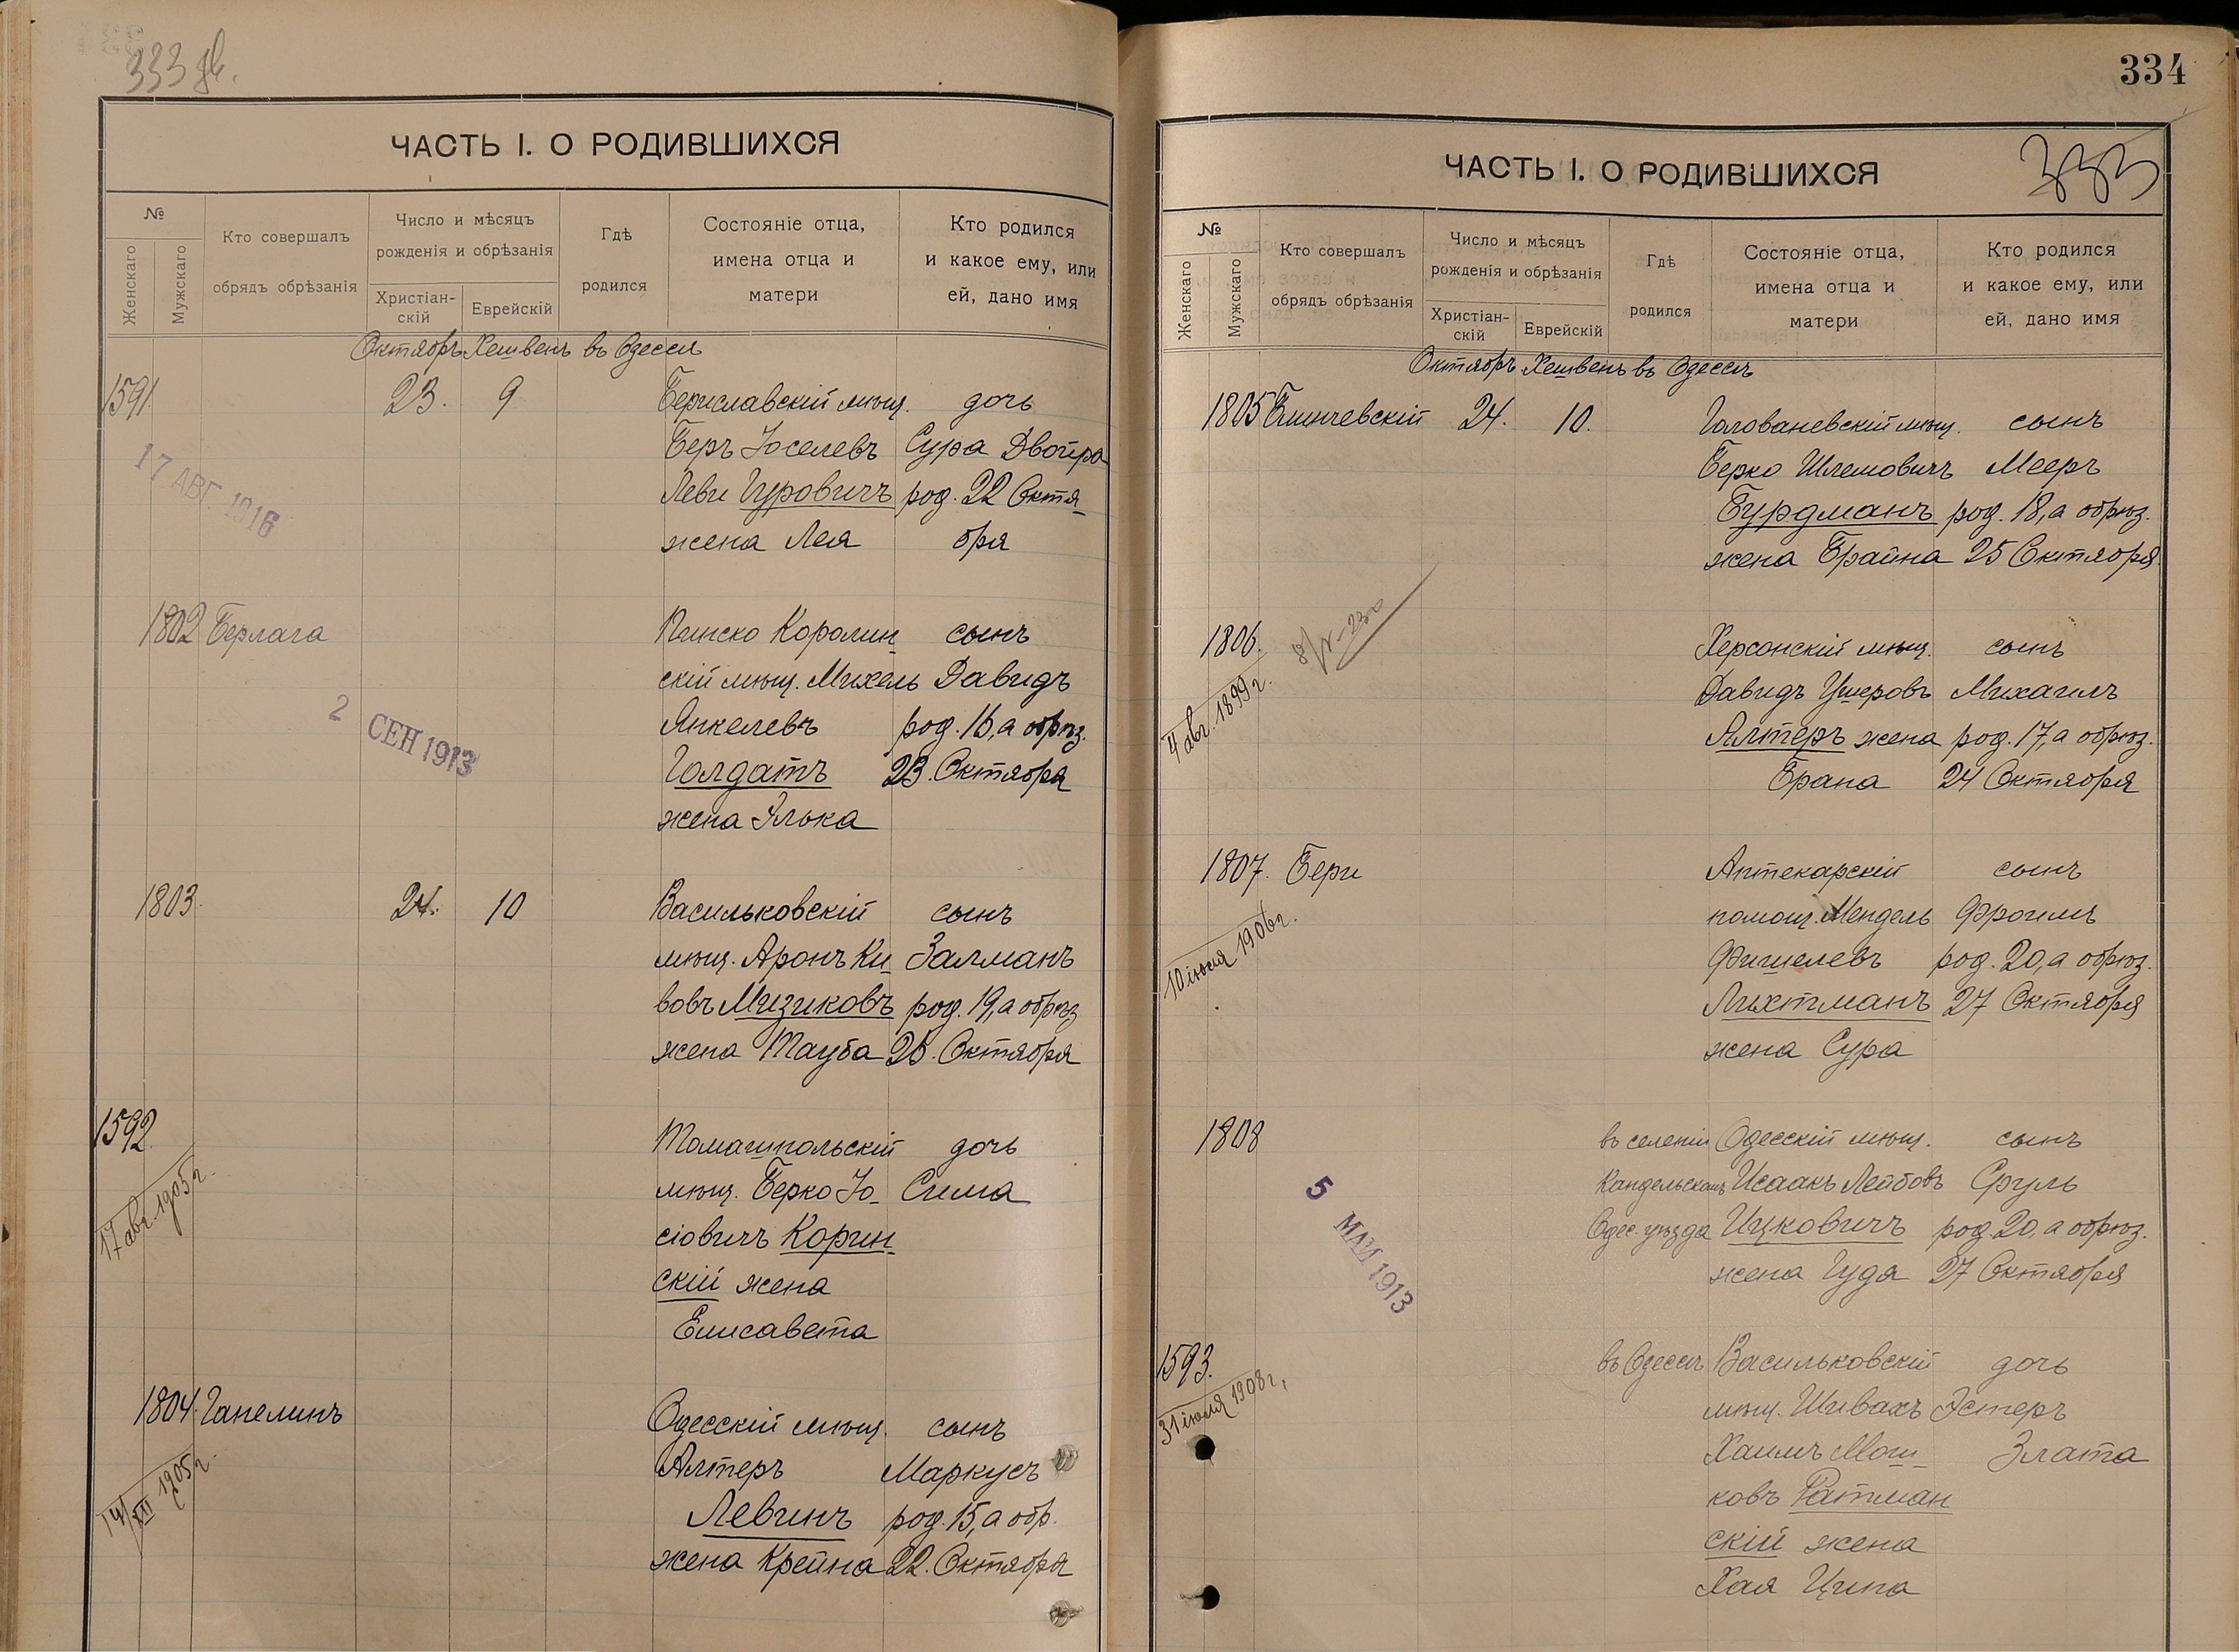 333 об.
ЧАСТЬ I. О РОДИВШИХСЯ
№
Женскаго
Мужскаго
Кто совершалъ
обрядъ обрѣзанія
Число и мѣсяцъ
рожденія и обрѣзанія
Христіан-
скій
Еврейскій
Гдѣ
родился
Состояніе отца,
имена отца и
матери
Кто родился
и какое ему, или
ей, дано имя
Октябрь Хешвенъ въ Одессѣ
1591 23. 9 Бериславскій мѣщ. дочь
Беръ Іоселевъ Сура Двойра
Леви Гуровичъ род. 22 Октя-
жена Лея бря
17 АВГ. 1916
1802 Берлага Пинско Каролин- сынъ
скій мѣщ. Михель Давидъ
Янкелевъ род. 16, а обрѣз.
Голдатъ 23. Октября
жена Элька
2 СЕН 1913
1803. 24. 10 Васильковскій сынъ
мѣщ. Аронъ Ки- Залманъ
вовъ Мизиковъ род. 19, а обрѣз
жена Тауба 26. Октября
1592. Томашпольскій дочь
мѣщ. Берко Іо- Сима
сіовичъ Корин-
скій жена
Елисавета
17 авг. 1905 г.
1804. Гапелинъ Одесскій мѣщ. сынъ
Алтеръ Маркусъ
Левинъ род. 15, а обр.
жена Крейна 22. Октября
14/XII 1905 г.
334
333
ЧАСТЬ I. О РОДИВШИХСЯ
№
Женскаго
Мужскаго
Кто совершалъ
обрядъ обрѣзанія
Число и мѣсяцъ
рожденія и обрѣзанія
Христіан-
скій
Еврейскій
Гдѣ
родился
Состояніе отца,
имена отца и
матери
Кто родился
и какое ему, или
ей, дано имя
Октябрь Хешвенъ въ Одессѣ
1805 24. 10. Голованевскій мѣщ. сынъ
Берко Шлемовичъ Мееръ
Бурдманъ род. 18, а обрѣз.
жена Брайна 25 Октября
1806. Херсонскій мѣщ. сынъ
Давидъ Ушеровъ Михаилъ
Алтеръ жена род. 17, а обрѣз.
Брана 24 Октября
4 авг. 1899 г.
1807. Бери Аптекарскій сынъ
помощ. Мендель Фроимъ
Фишелевъ род. 20, а обрѣз.
Лихтманъ 27 Октября
жена Сура
10 іюня 1906 г.
1808 въ селеніи Одесскій мѣщ. сынъ
Кандельскомъ Исаакъ Лейбовъ Сруль
Одес. уѣзда Ицковичъ род. 20, а обрѣз.
жена Гуда 27 Октября
5 МАЙ 1913
1593. въ Одессѣ Васильковскій дочь
мѣщ. Шивахъ Эстеръ
Хаимъ Мош- Злата
ковъ Ратман
скій жена
Хая Ципа
31 іюля 1908 г.